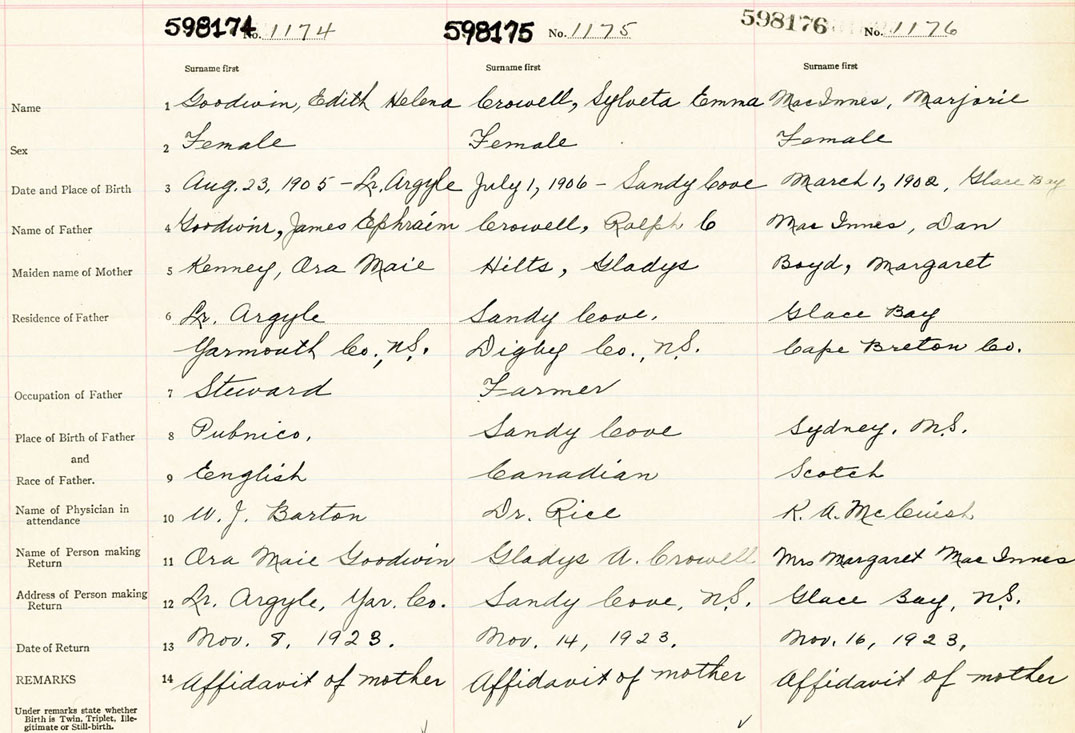 598174 No. 1174 598175 No. 1175 598176 No. 1176
Surname first Surname first Surname first
Name 1 Goodwin, Edith Helena Crowell, Sylveta Emma MacInnes, Marjorie
Sex 2 Female Female Female
Date and Place of Birth 3 Aug. 23, 1905 - Lr. Argyle July 1, 1906 - Sandy Cove March 1, 1902, Glace Bay
Name of Father 4 Goodwin, James Ephraim Crowell, Ralph C Mac Innes, Dan
Maiden name of Mother 5 Kenney, Ora Maie Hilts, Gladys Boyd, Margaret
Residence of Father 6 Lr. Argyle Sandy Cove. Glace Bay
Yarmouth Co., N.S. Digby Co., N.S. Cape Breton Co.
Occupation of Father 7 Steward Farmer
Place of Birth of Father 8 Pubnico. Sandy Cove Sydney. N.S.
and
Race of Father. 9 English Canadian Scotch
Name of Physician in
attendance 10 W. J. Barton Dr. Rice K. A. McCuish
Name of Person making
Return 11 Ora Maie Goodwin Gladys A. Crowell Mrs Margaret Mac Innes
Address of Person making
Return 12 Lr. Argyle, Yar. Co. Sandy Cove, N.S. Glace Bay, N.S.
Date of Return 13 Nov. 8, 1923. Nov. 14, 1923. Nov. 16, 1923,
REMARKS 14 Affidavit of mother Affidavit of mother Affidavit of mother
Under remarks state whether
Birth is Twin, Triplet, Ille-
gitimate or Still-birth.